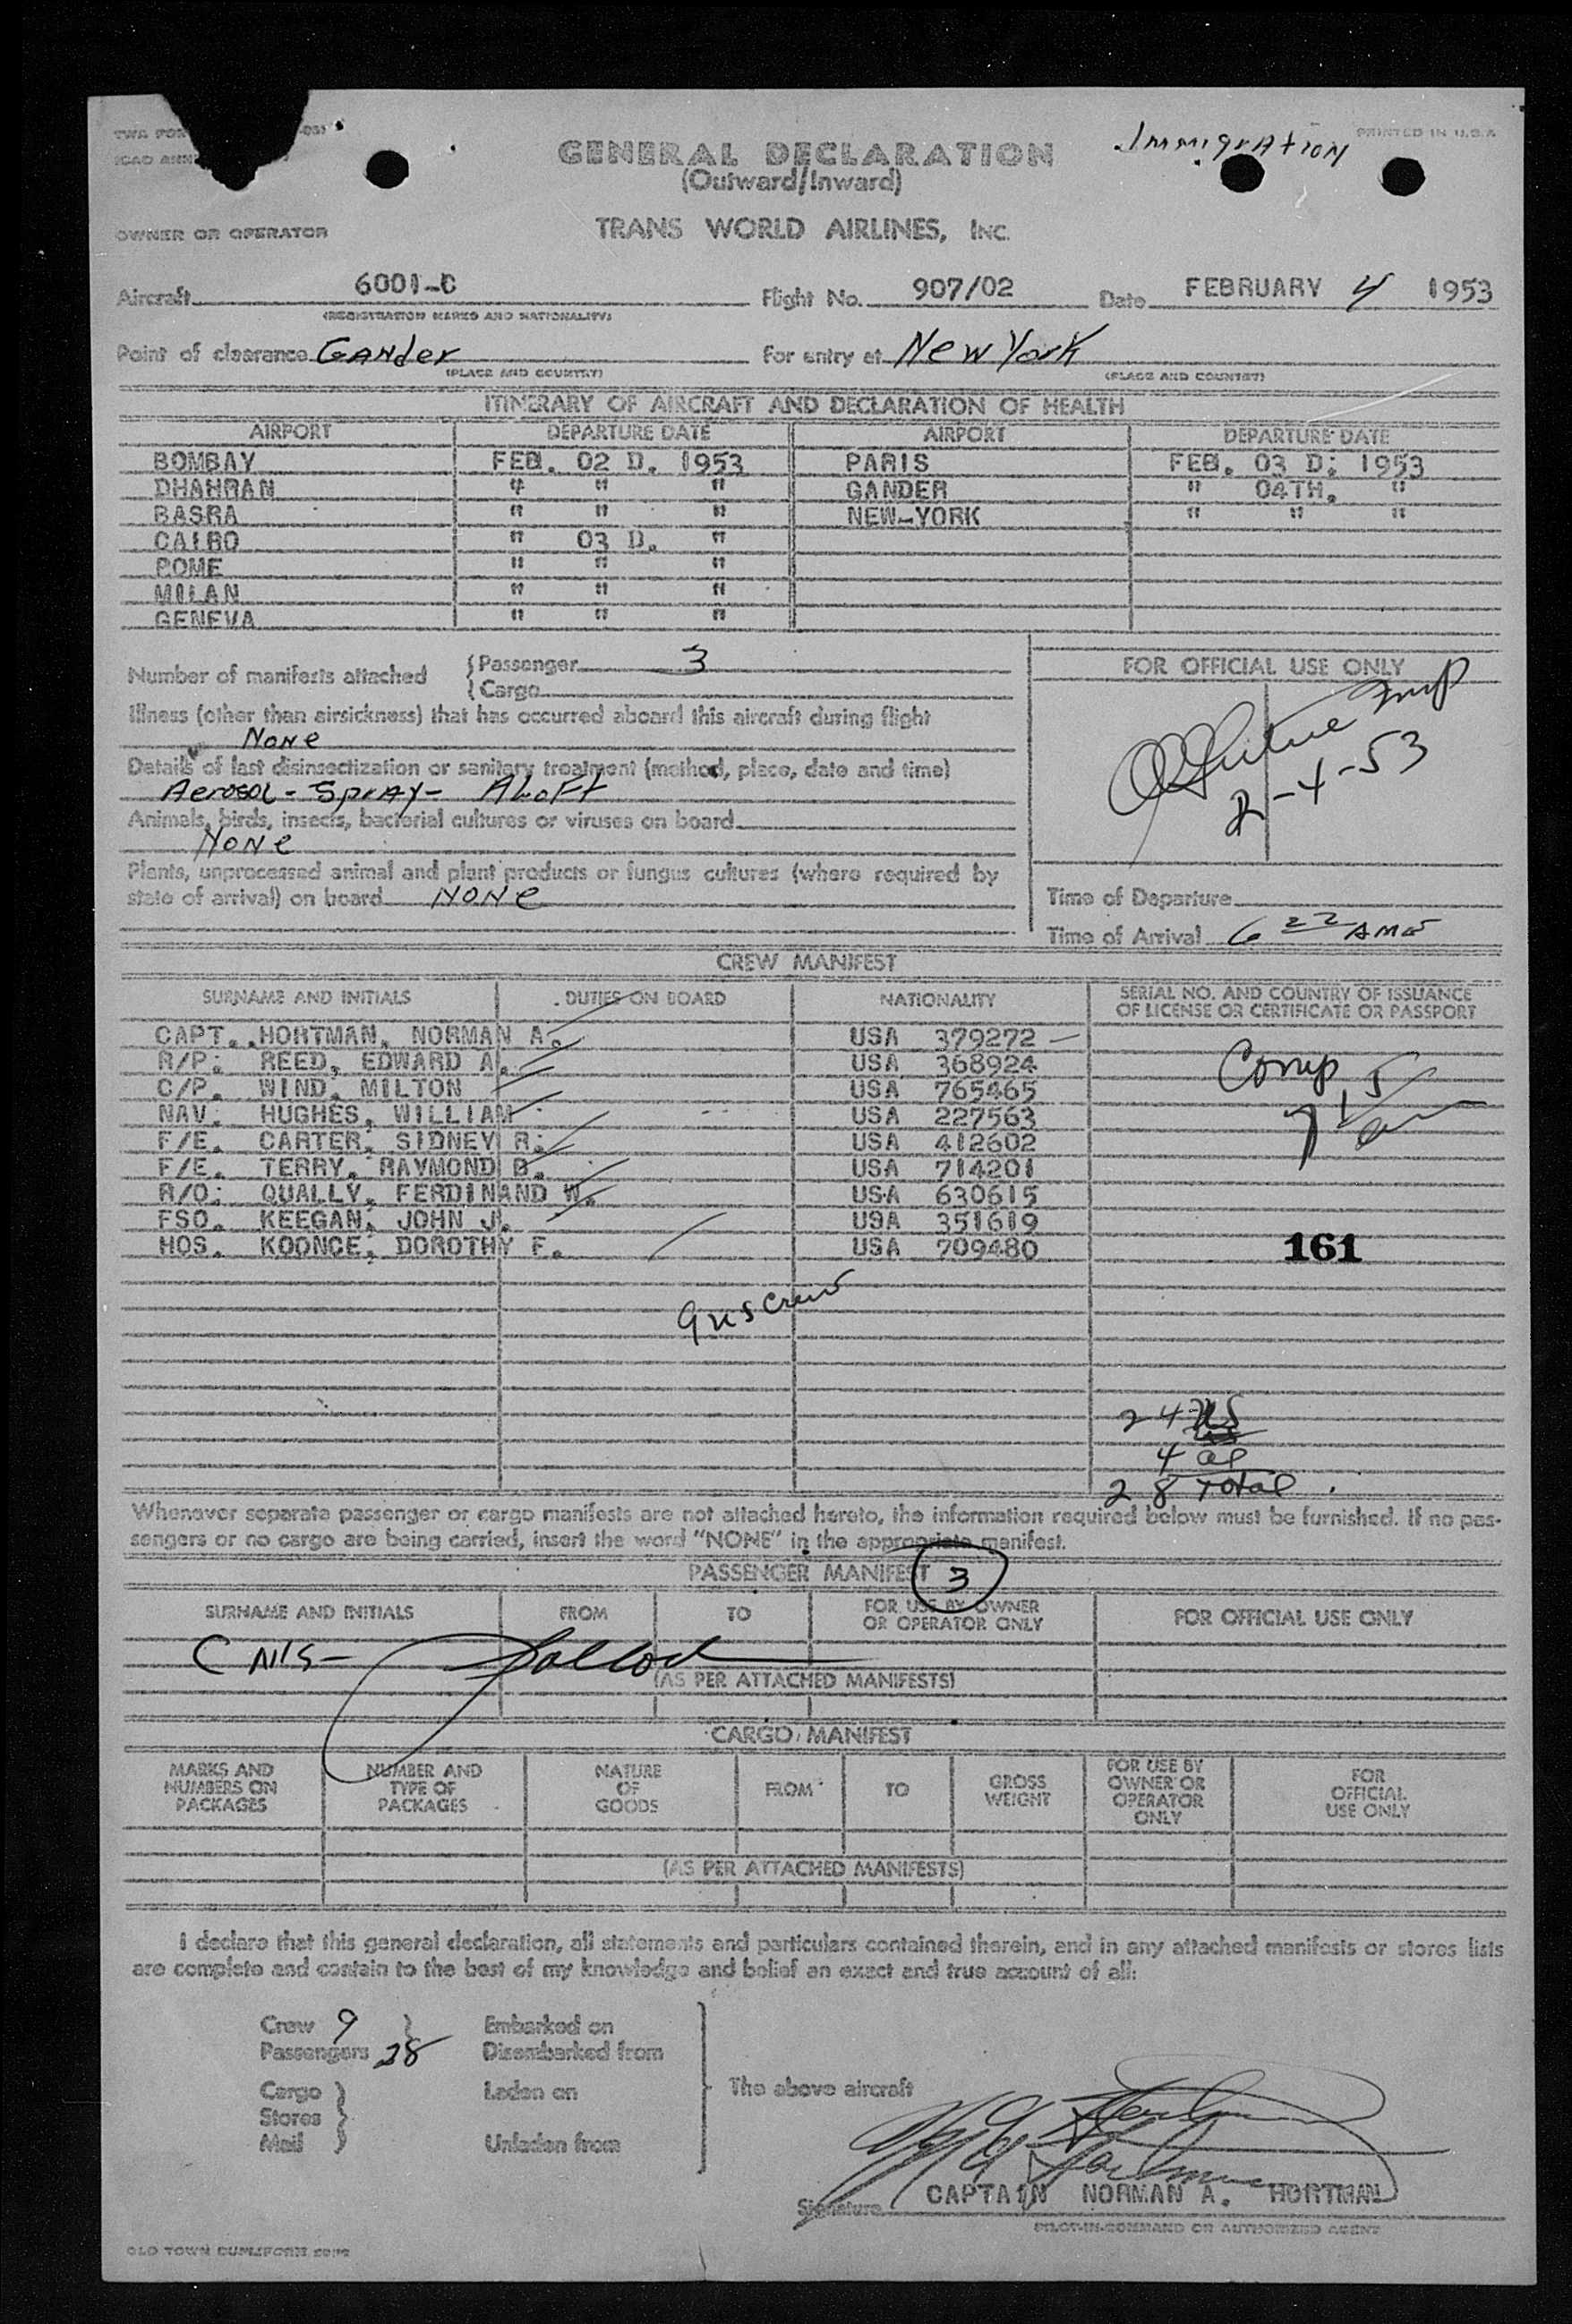 TWA FOR
ICAO ANN
Immigration
PRINTED IN U.S.A.
GENERAL DECLARATION
(Outward/Inward)
OWNER OR OPERATOR TRANS WORLD AIRLINES, INC.
Aircraft 6001-C Flight No. 907/02 Date FEBRUARY 4 1953
(REGISTRATION MARKS AND NATIONALITY)
Point of clearance Gander For entry at New York
(PLACE AND COUNTRY) (PLACE AND COUNTRY)
ITINERARY OF AIRCRAFT AND DECLARATION OF HEALTH
AIRPORT DEPARTURE DATE AIRPORT DEPARTURE DATE
BOMBAY FEB. 02 D. 1953 PARIS FEB. 03 D. 1953
DHAHRAN " " " GANDER " 04TH. "
BASRA " " " NEW-YORK " " "
CAIRO " 03 D. "
ROME " " "
MILAN " " "
GENEVA " " "
Number of manifests attached { Passenger 3
{ Cargo
FOR OFFICIAL USE ONLY
Illness (other than airsickness) that has occurred aboard this aircraft during flight
None
Details of last disinsectization or sanitary treatment (method, place, date and time)
Aerosol - Spray - Aloft
2-4-53
Animals, birds, insects, bacterial cultures or viruses on board
None
Plants, unprocessed animal and plant products or fungus cultures (where required by
state of arrival) on board None
Time of Departure
Time of Arrival 6 22 AM
CREW MANIFEST
SURNAME AND INITIALS DUTIES ON BOARD NATIONALITY SERIAL NO. AND COUNTRY OF ISSUANCE
OF LICENSE OR CERTIFICATE OR PASSPORT
CAPT. HORTMAN, NORMAN A. USA 379272
R/P. REED, EDWARD A. USA 368924
C/P. WIND, MILTON USA 765465
NAV. HUGHES, WILLIAM USA 227563
F/E. CARTER, SIDNEY R. USA 412602
F/E. TERRY, RAYMOND B. USA 714201
R/O. QUALLY, FERDINAND W. USA 630615
FSO. KEEGAN, JOHN J. USA 351619
HOS. KOONCE, DOROTHY F. USA 709480
Comp
161
9 US Crew
24 US
4 al
28 Total
Whenever separate passenger or cargo manifests are not attached hereto, the information required below must be furnished. If no pas-
sengers or no cargo are being carried, insert the word "NONE" in the appropriate manifest.
PASSENGER MANIFEST 3
SURNAME AND INITIALS FROM TO FOR USE BY OWNER
OR OPERATOR ONLY FOR OFFICIAL USE ONLY
(AS PER ATTACHED MANIFESTS)
CARGO MANIFEST
MARKS AND
NUMBERS ON
PACKAGES
NUMBER AND
TYPE OF
PACKAGES
NATURE
OF
GOODS
FROM
TO
GROSS
WEIGHT
FOR USE BY
OWNER OR
OPERATOR
ONLY
FOR
OFFICIAL
USE ONLY
(AS PER ATTACHED MANIFESTS)
I declare that this general declaration, all statements and particulars contained therein, and in any attached manifests or stores lists
are complete and contain to the best of my knowledge and belief an exact and true account of all:
Crew 9 } Embarked on
Passengers 28 Disembarked from
Cargo } Laden on
Stores }
Mail } Unladen from
The above aircraft
Signature CAPTAIN NORMAN A. HORTMAN
PILOT-IN-COMMAND OR AUTHORIZED AGENT
OLD TOWN DUPLIFORM